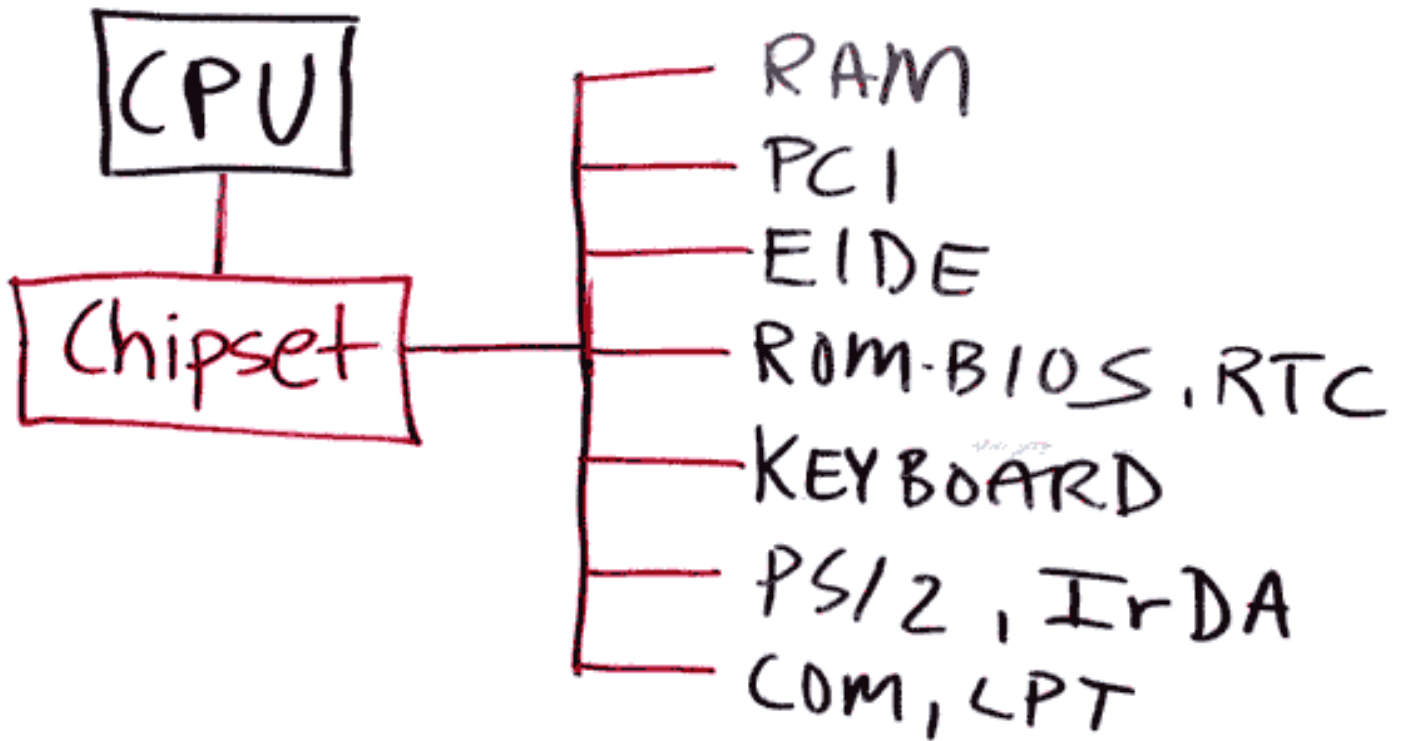 CPU
Chipset
RAM
PCI
EIDE
ROM-BIOS, RTC
KEYBOARD
PS/2, IrDA
COM, LPT